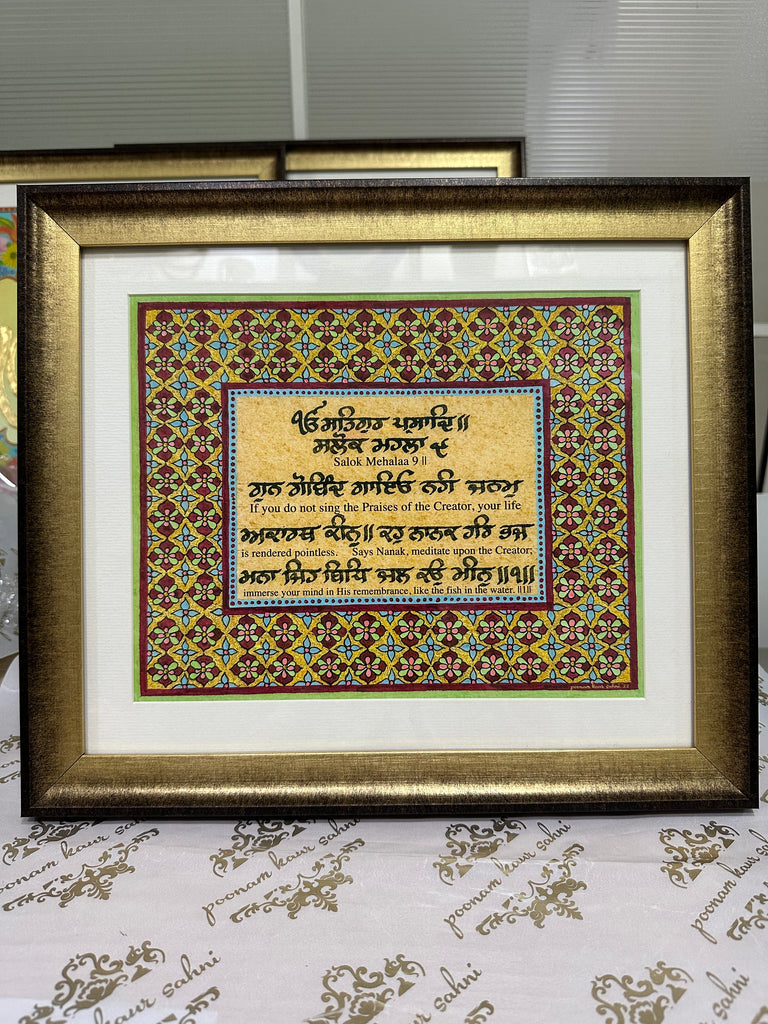 ੴ ਸਤਿਗੁਰ ਪ੍ਰਸਾਦਿ॥
ਸਲੋਕ ਮਹਲਾ ੯
Salok Mehalaa 9 ||
ਗੁਨ ਗੋਬਿੰਦ ਗਾਇਓ ਨਹੀ ਜਨਮੁ
If you do not sing the Praises of the Creator, your life
ਅਕਾਰਥ ਕੀਨੁ॥ ਕਹੁ ਨਾਨਕ ਹਰਿ ਭਜੁ
is rendered pointless. Says Nanak, meditate upon the Creator;
ਮਨਾ ਜਿਹ ਬਿਧਿ ਜਲ ਕਉ ਮੀਨੁ ॥੧॥
immerse your mind in His remembrance, like the fish in the water. ||1||
poonam kaur sahni 22
poonam kaur sahni
poonam kaur sahni
poonam kaur sahni
poonam
poonam kaur sahni
kaur sahni